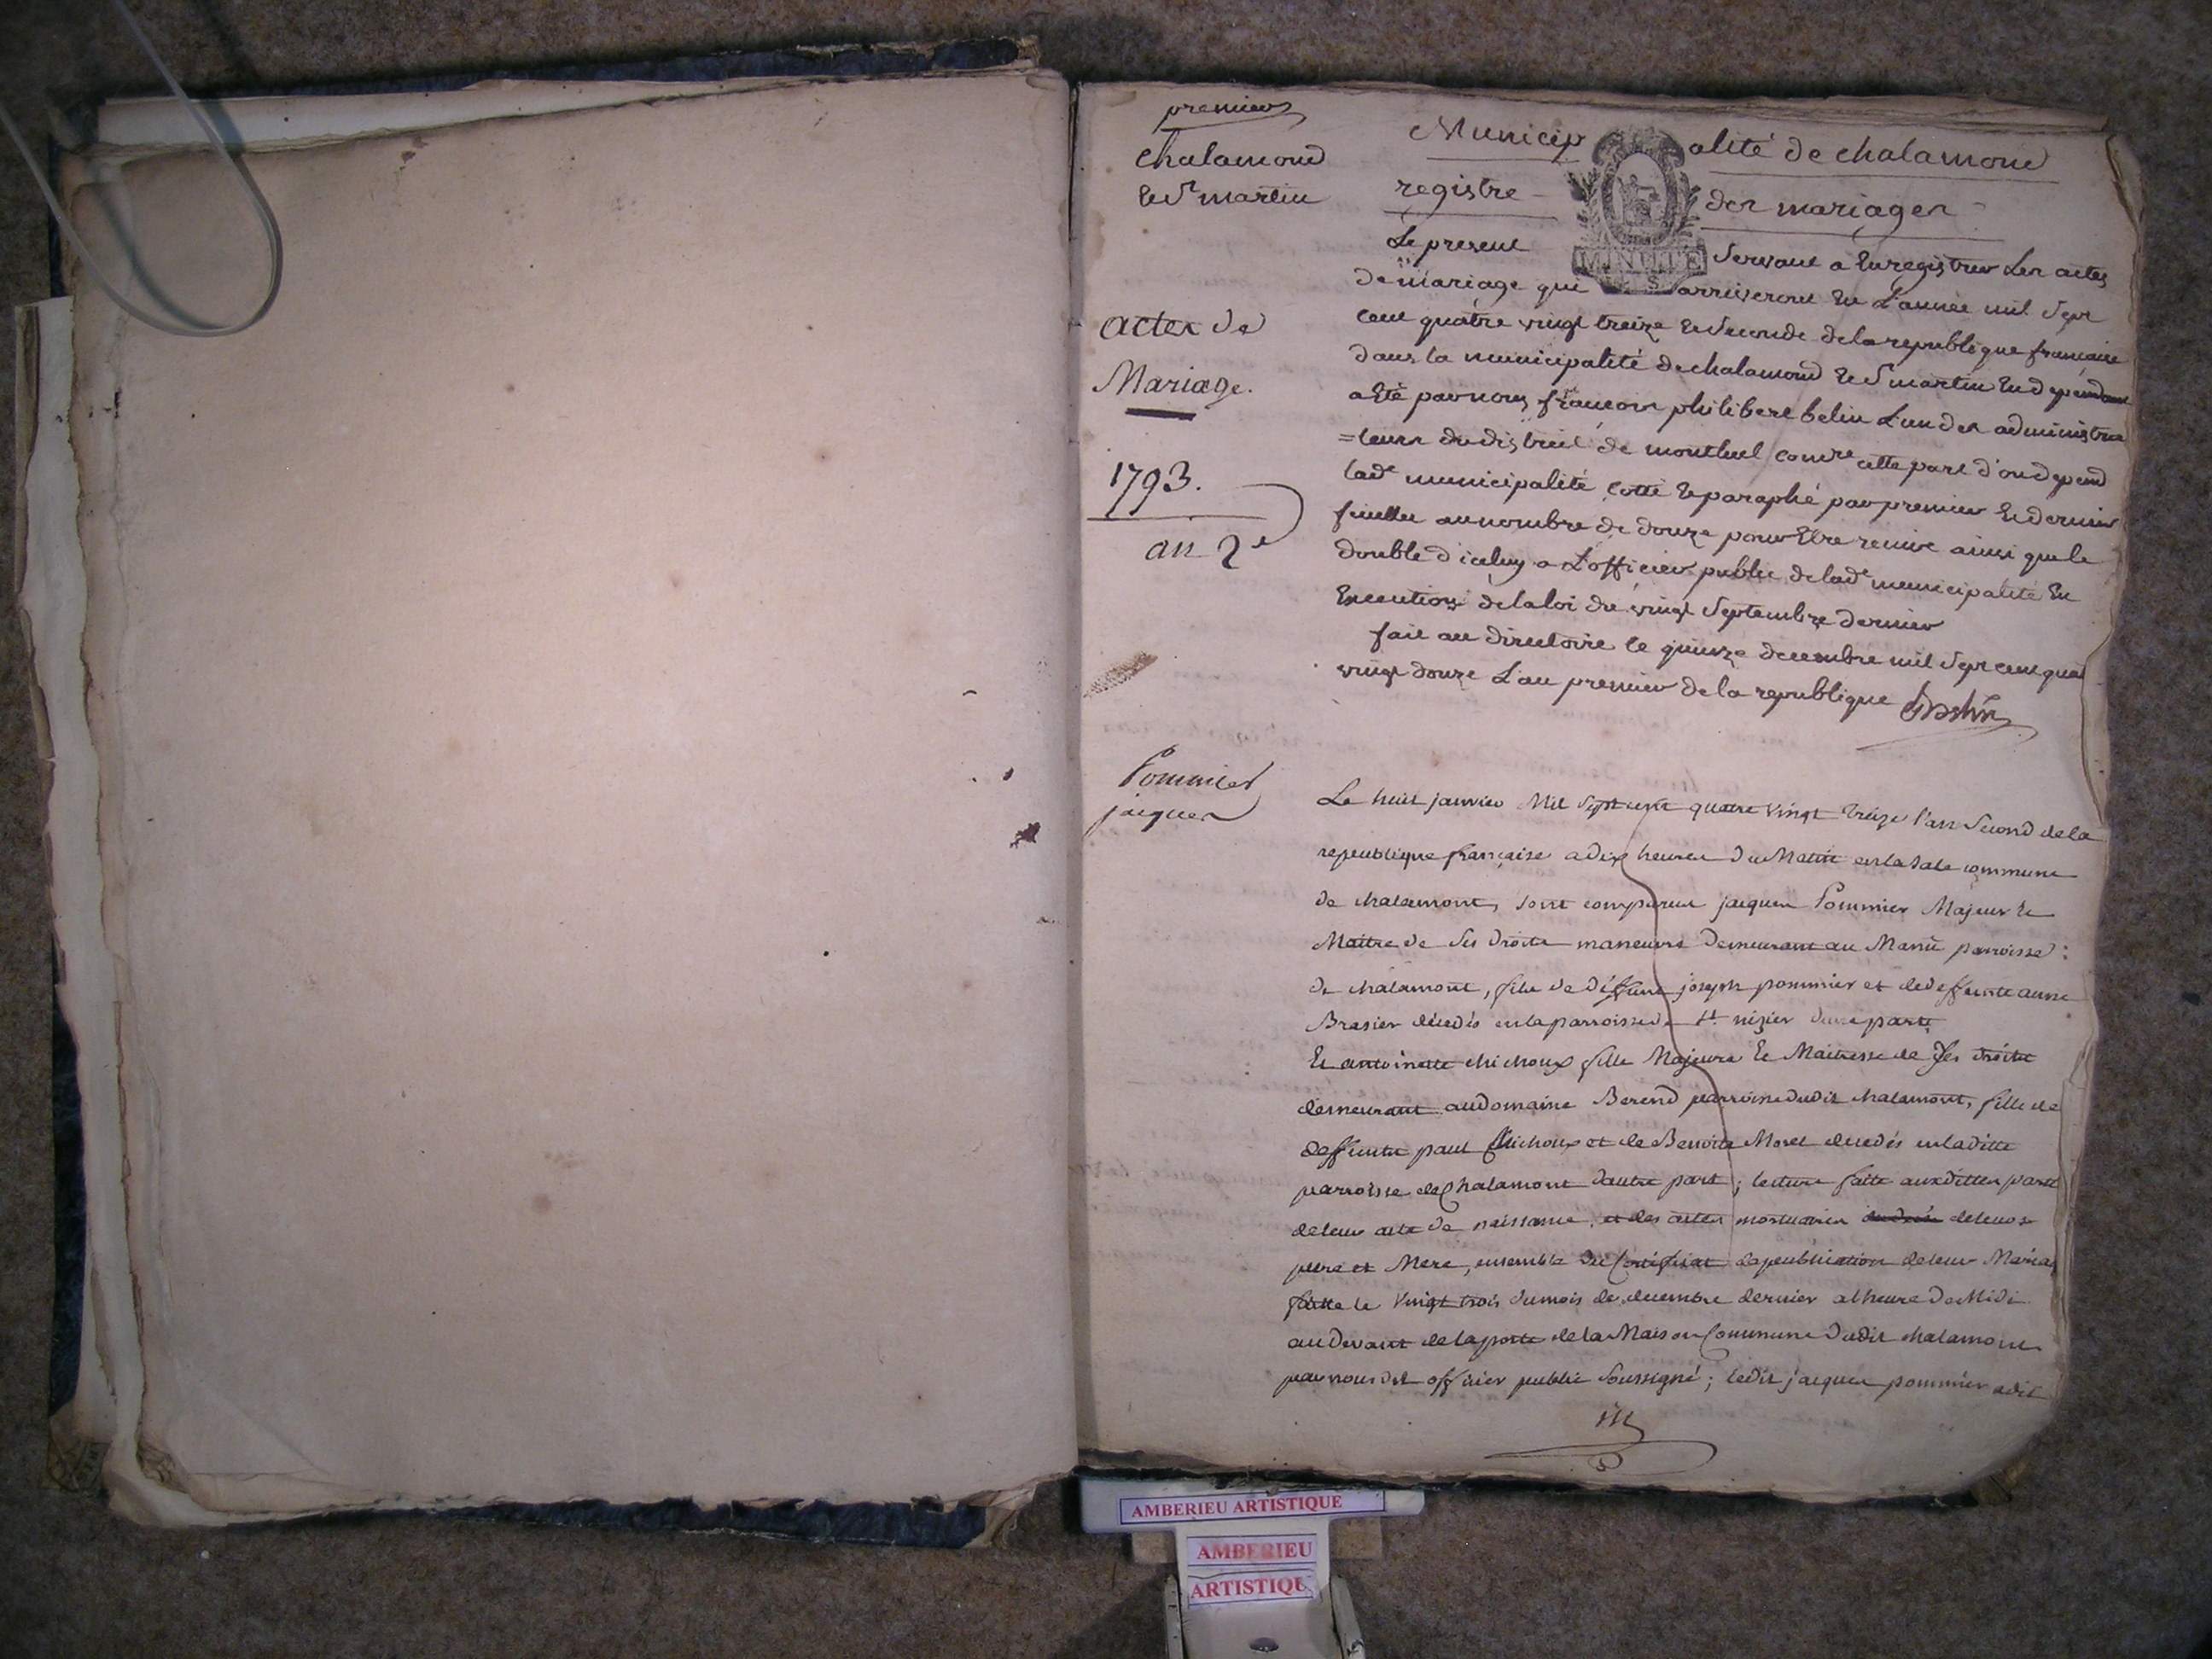 premier
chalamond
et St martin
Municipalité de chalamond
registre des mariages
MINUTE
S
Le present servant a enregistrer Les actes
de mariage qui arriveront En L'année mil sept
cent quatre vingt treize et seconde de la republique francaise
dans la municipalité de chalamond et St martin En dependant
a Eté par nous francois philibert belin L'un des administra
=teurs du district de montluel comre cette part d'ou depend
lade municipalité cotté et paraphé par premier et dernier
feuillet au nombre de douze pour Etre remise ainsi que le
double d'iceluy a L'officier public de lade municipalité En
Execution de la loi du vingt septembre dernier
fait au directoire le quinze decembre mil sept cent qua
vingt douze L'an premier de la republique
actes de
Mariage.
1793.
an 2e
Pommier
jacques
Le huit janvier Mil sept cent quatre vingt treize l'an second de la
republique française a dix heures du Matin en la sale commune
de chalamont, sont comparus jacques Pommier Majeur et
Maitre de ses droits maneuvre demeurant au parroisse
de chalamont, fils de déffunt joseph pommier et de deffunte anne
Brasier décédés en la parroisse de St nizier d'une part
Et antoinette chichoux fille Majeure et Maitresse de ses droits
demeurant au domaine Berend parroisse dudit chalamont, fille de
deffunts paul chichoux et de Benoite Morel decedés en laditte
parroisse de chalamont d'autre part ; lecture faitte aux dittes parts
de leur acte de naissance, et des actes mortuaires de leurs
pere et Mere, ensemble du Certificat de publication de leur Maria
faitte le vingt trois du mois de decembre dernier a l'heure de Midi
au devant de la porte de la Maison Commune dudit chalamont
par nous dit officier public soussigné ; ledit jacques pommier a dit
AMBERIEU ARTISTIQUE
AMBERIEU
ARTISTIQU